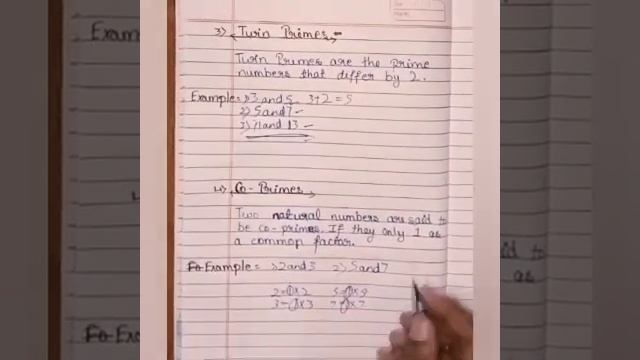 3) Twin Primes -
Twin Primes are the prime
numbers that differ by 2.
Example = 1) 3 and 5 3+2=5
2) 5 and 7 -
3) 11 and 13 -
4) Co-Primes
Two natural numbers are said to
be co-primes. If they only 1 as
a common factor.
Example = 1) 2 and 3 2) 5 and 7
2-1×2
3-1×3 7-1×7